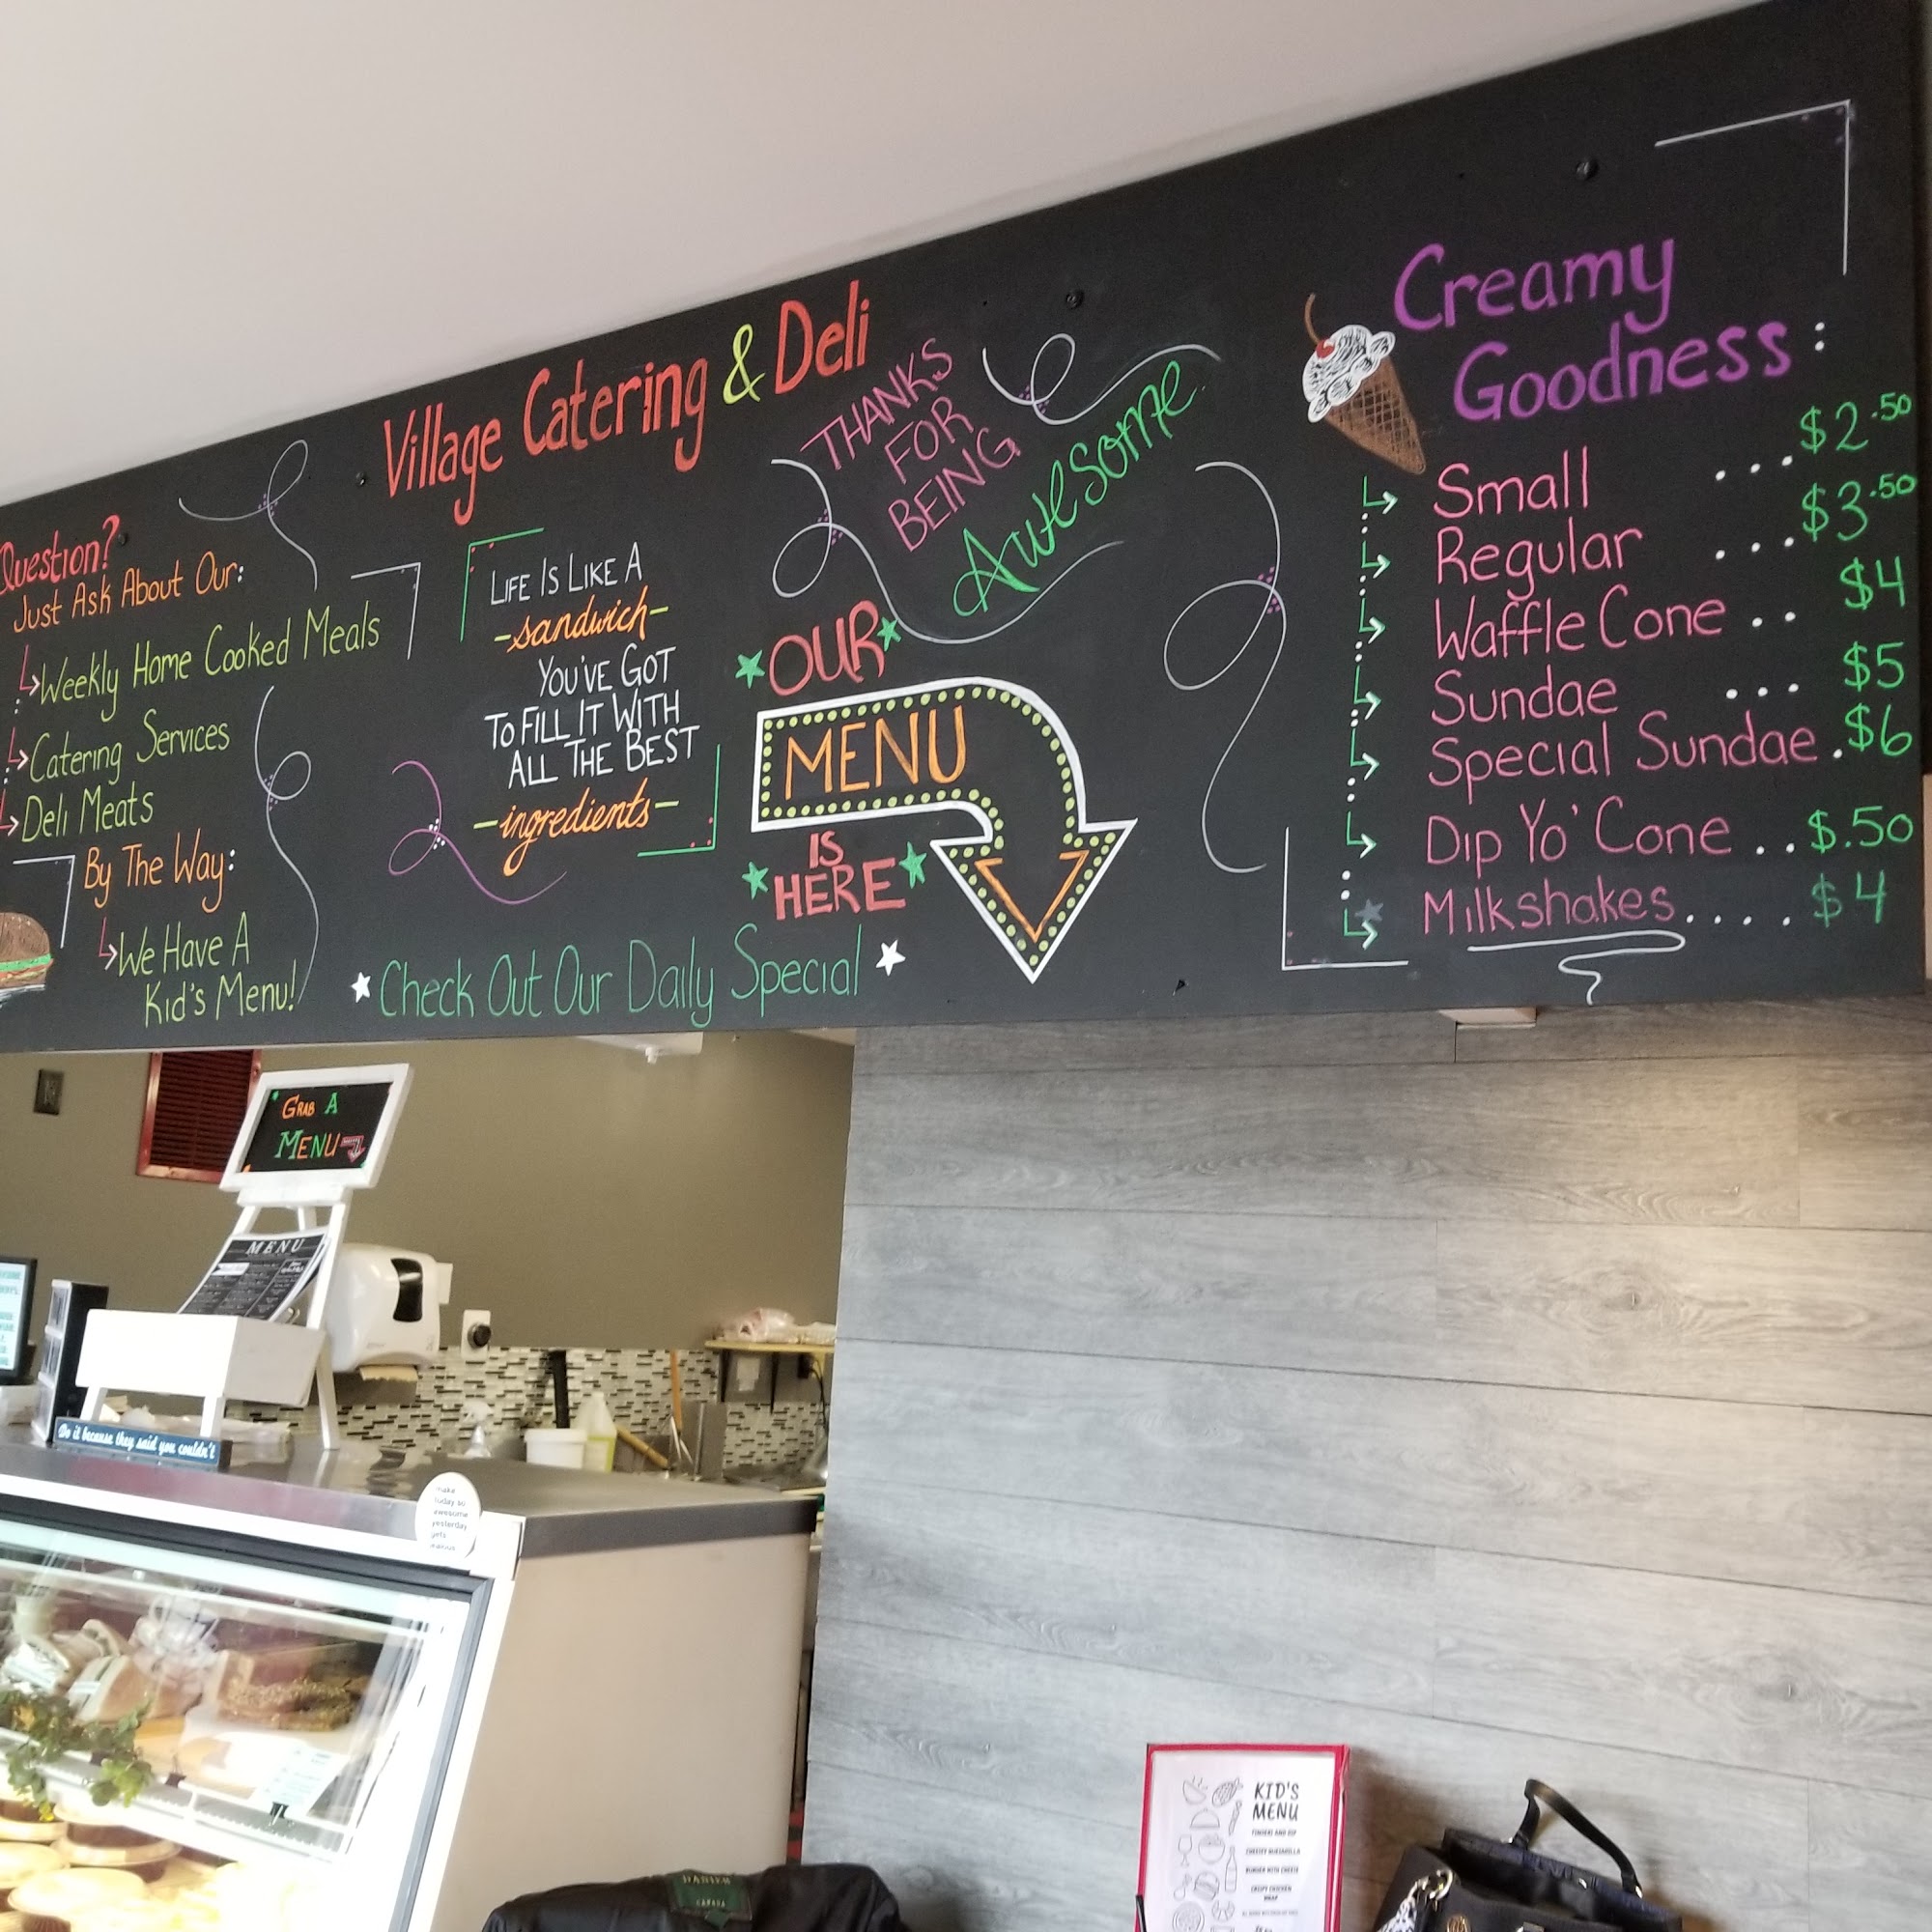 Question?
Just Ask About Our:
Weekly Home Cooked Meals
Catering Services
Deli Meats
By The Way:
We Have A
Kid's Menu!
Village Catering & Deli
LIFE IS LIKE A
-sandwich-
YOU'VE GOT
TO FILL IT WITH
ALL THE BEST
-ingredients-
Check Out Our Daily Special
THANKS
FOR
BEING
Awesome
OUR
MENU
IS
HERE
Creamy
Goodness:
Small ...$2.50
Regular ...$3.50
Waffle Cone .. $4
Sundae ... $5
Special Sundae .$6
Dip Yo' Cone ..$.50
Milkshakes.... $4
GRAB A
MENU
MENU
Do it because they said you couldn't
make
today so
awesome
yesterday
gets
KID'S
MENU
FINGERS AND DIP
CHEESEY MOZZARELLA
BURGER WITH CHEESE
CRISPY CHICKEN
WRAP
CANADA